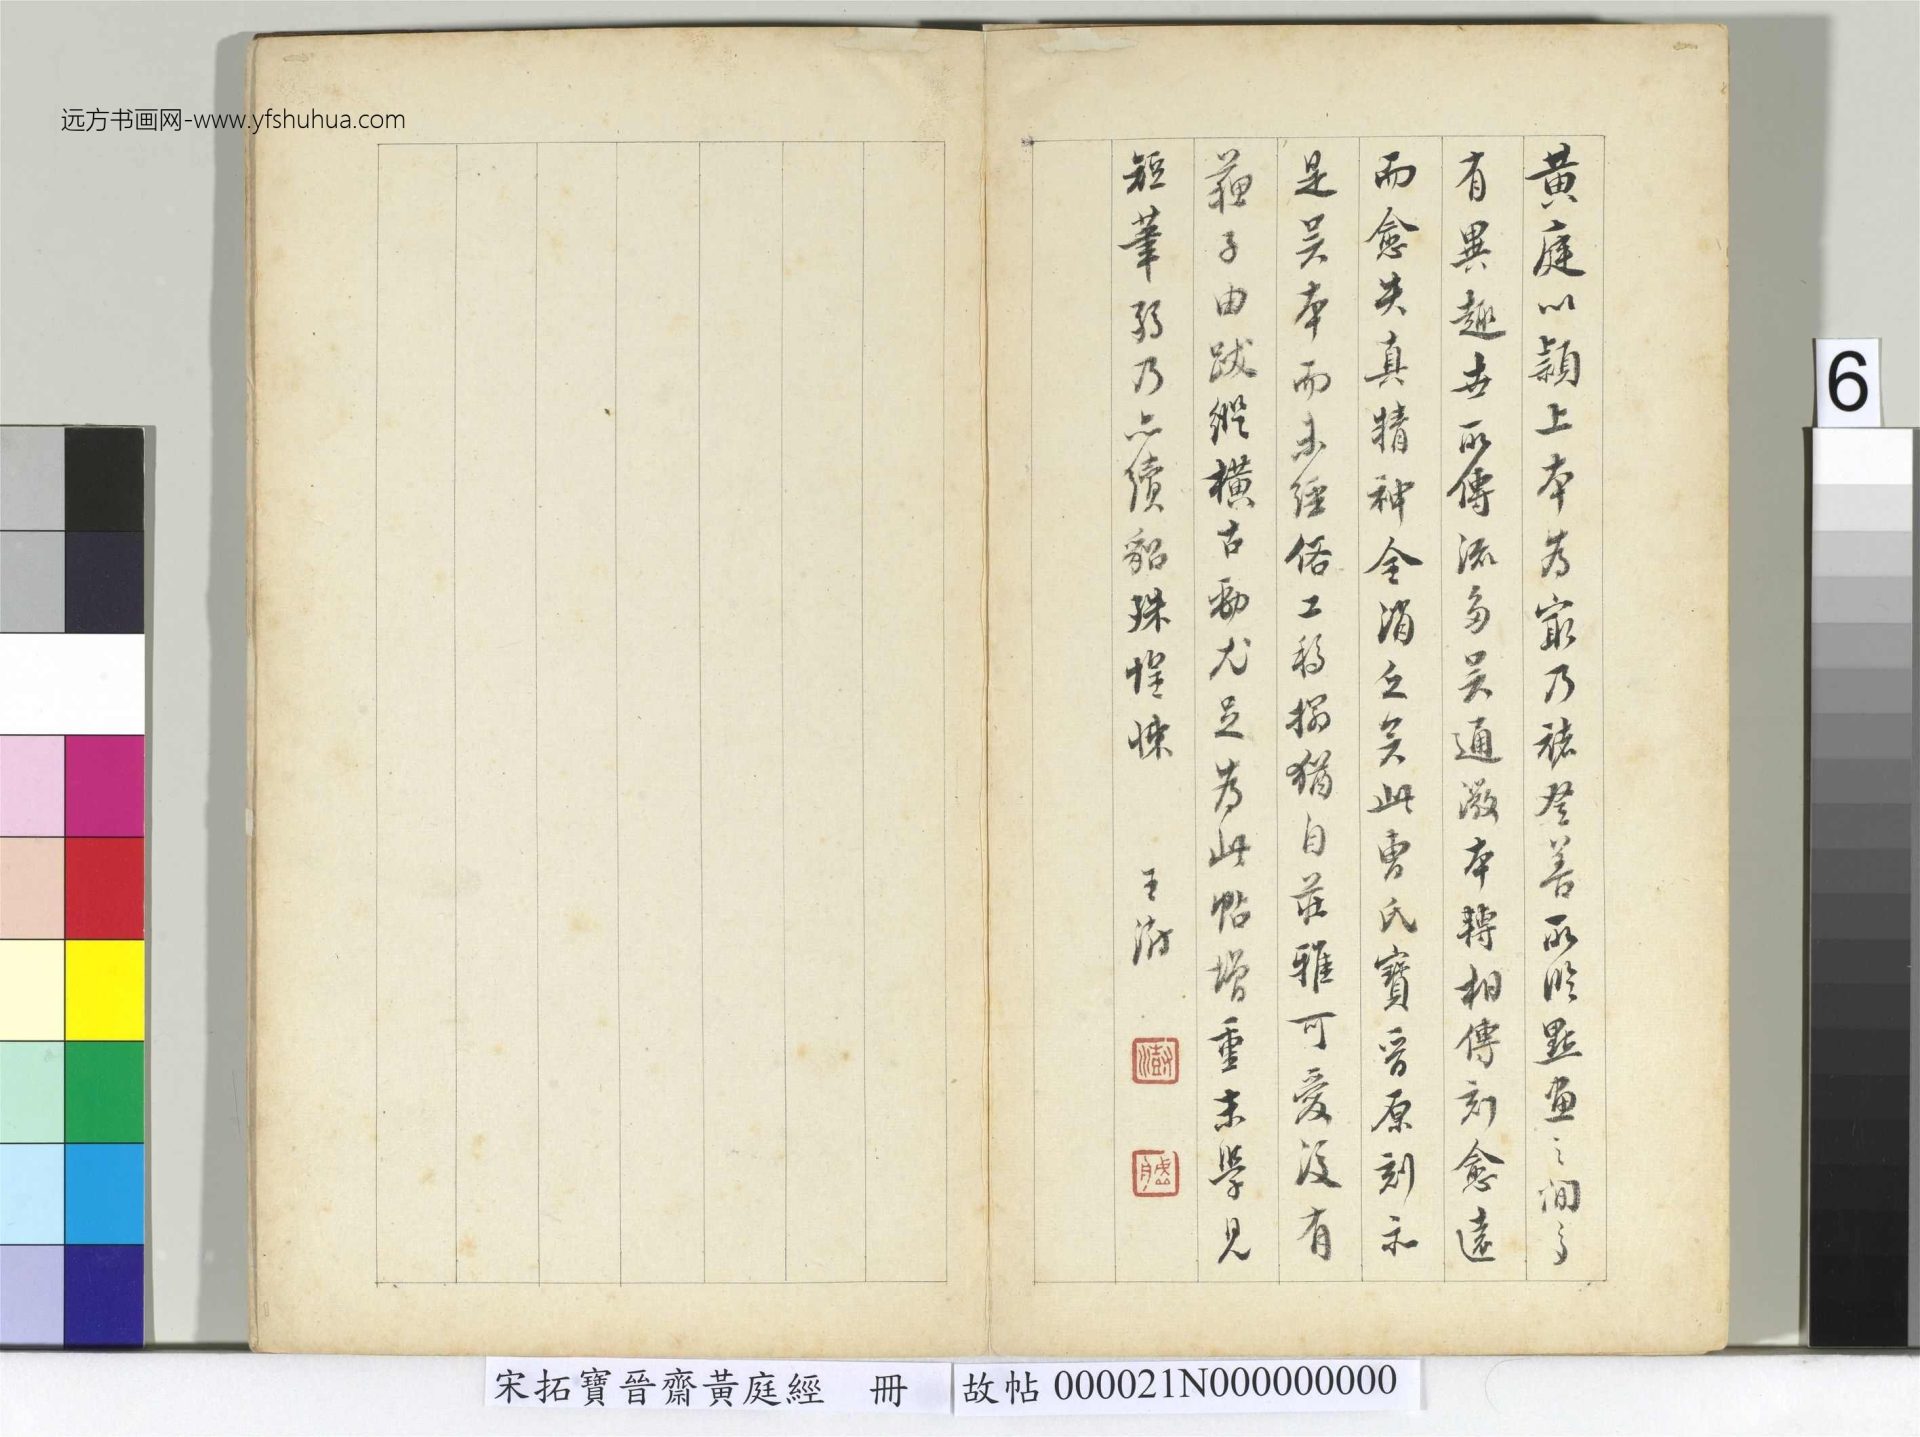 远方书画网-www.yfshuhua.com
黃庭以潁上本為寂乃褚登善所臨點畫之間多
有異趣世所傳流多吳通微本轉相傳刻愈遠
而愈失真精神全消亡矣此曹氏寶晉原刻亦
是吳本而未經俗工移搨猶自莊雅可愛後有
蘇子由跋縱橫古勁尤足為此帖增重末學見
短筆弱乃亦續貂殊惶悚
王澍
6
宋拓寶晉齋黃庭經 冊
故帖 000021N000000000